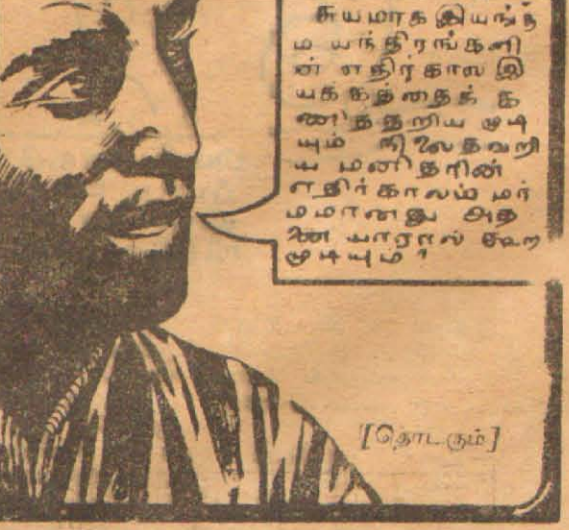 சுயமாக இயங்கு
ம யந்திரங்களி
ன் எதிர்கால இ
யக்கத்தைக் க
ணித்தறிய முடி
யும் நிலைதவறி
ய மனிதரின்
எதிர்காலம் மர்
மமானது அத
னை யாரால் கூற
முடியும்?
[தொடரும்]